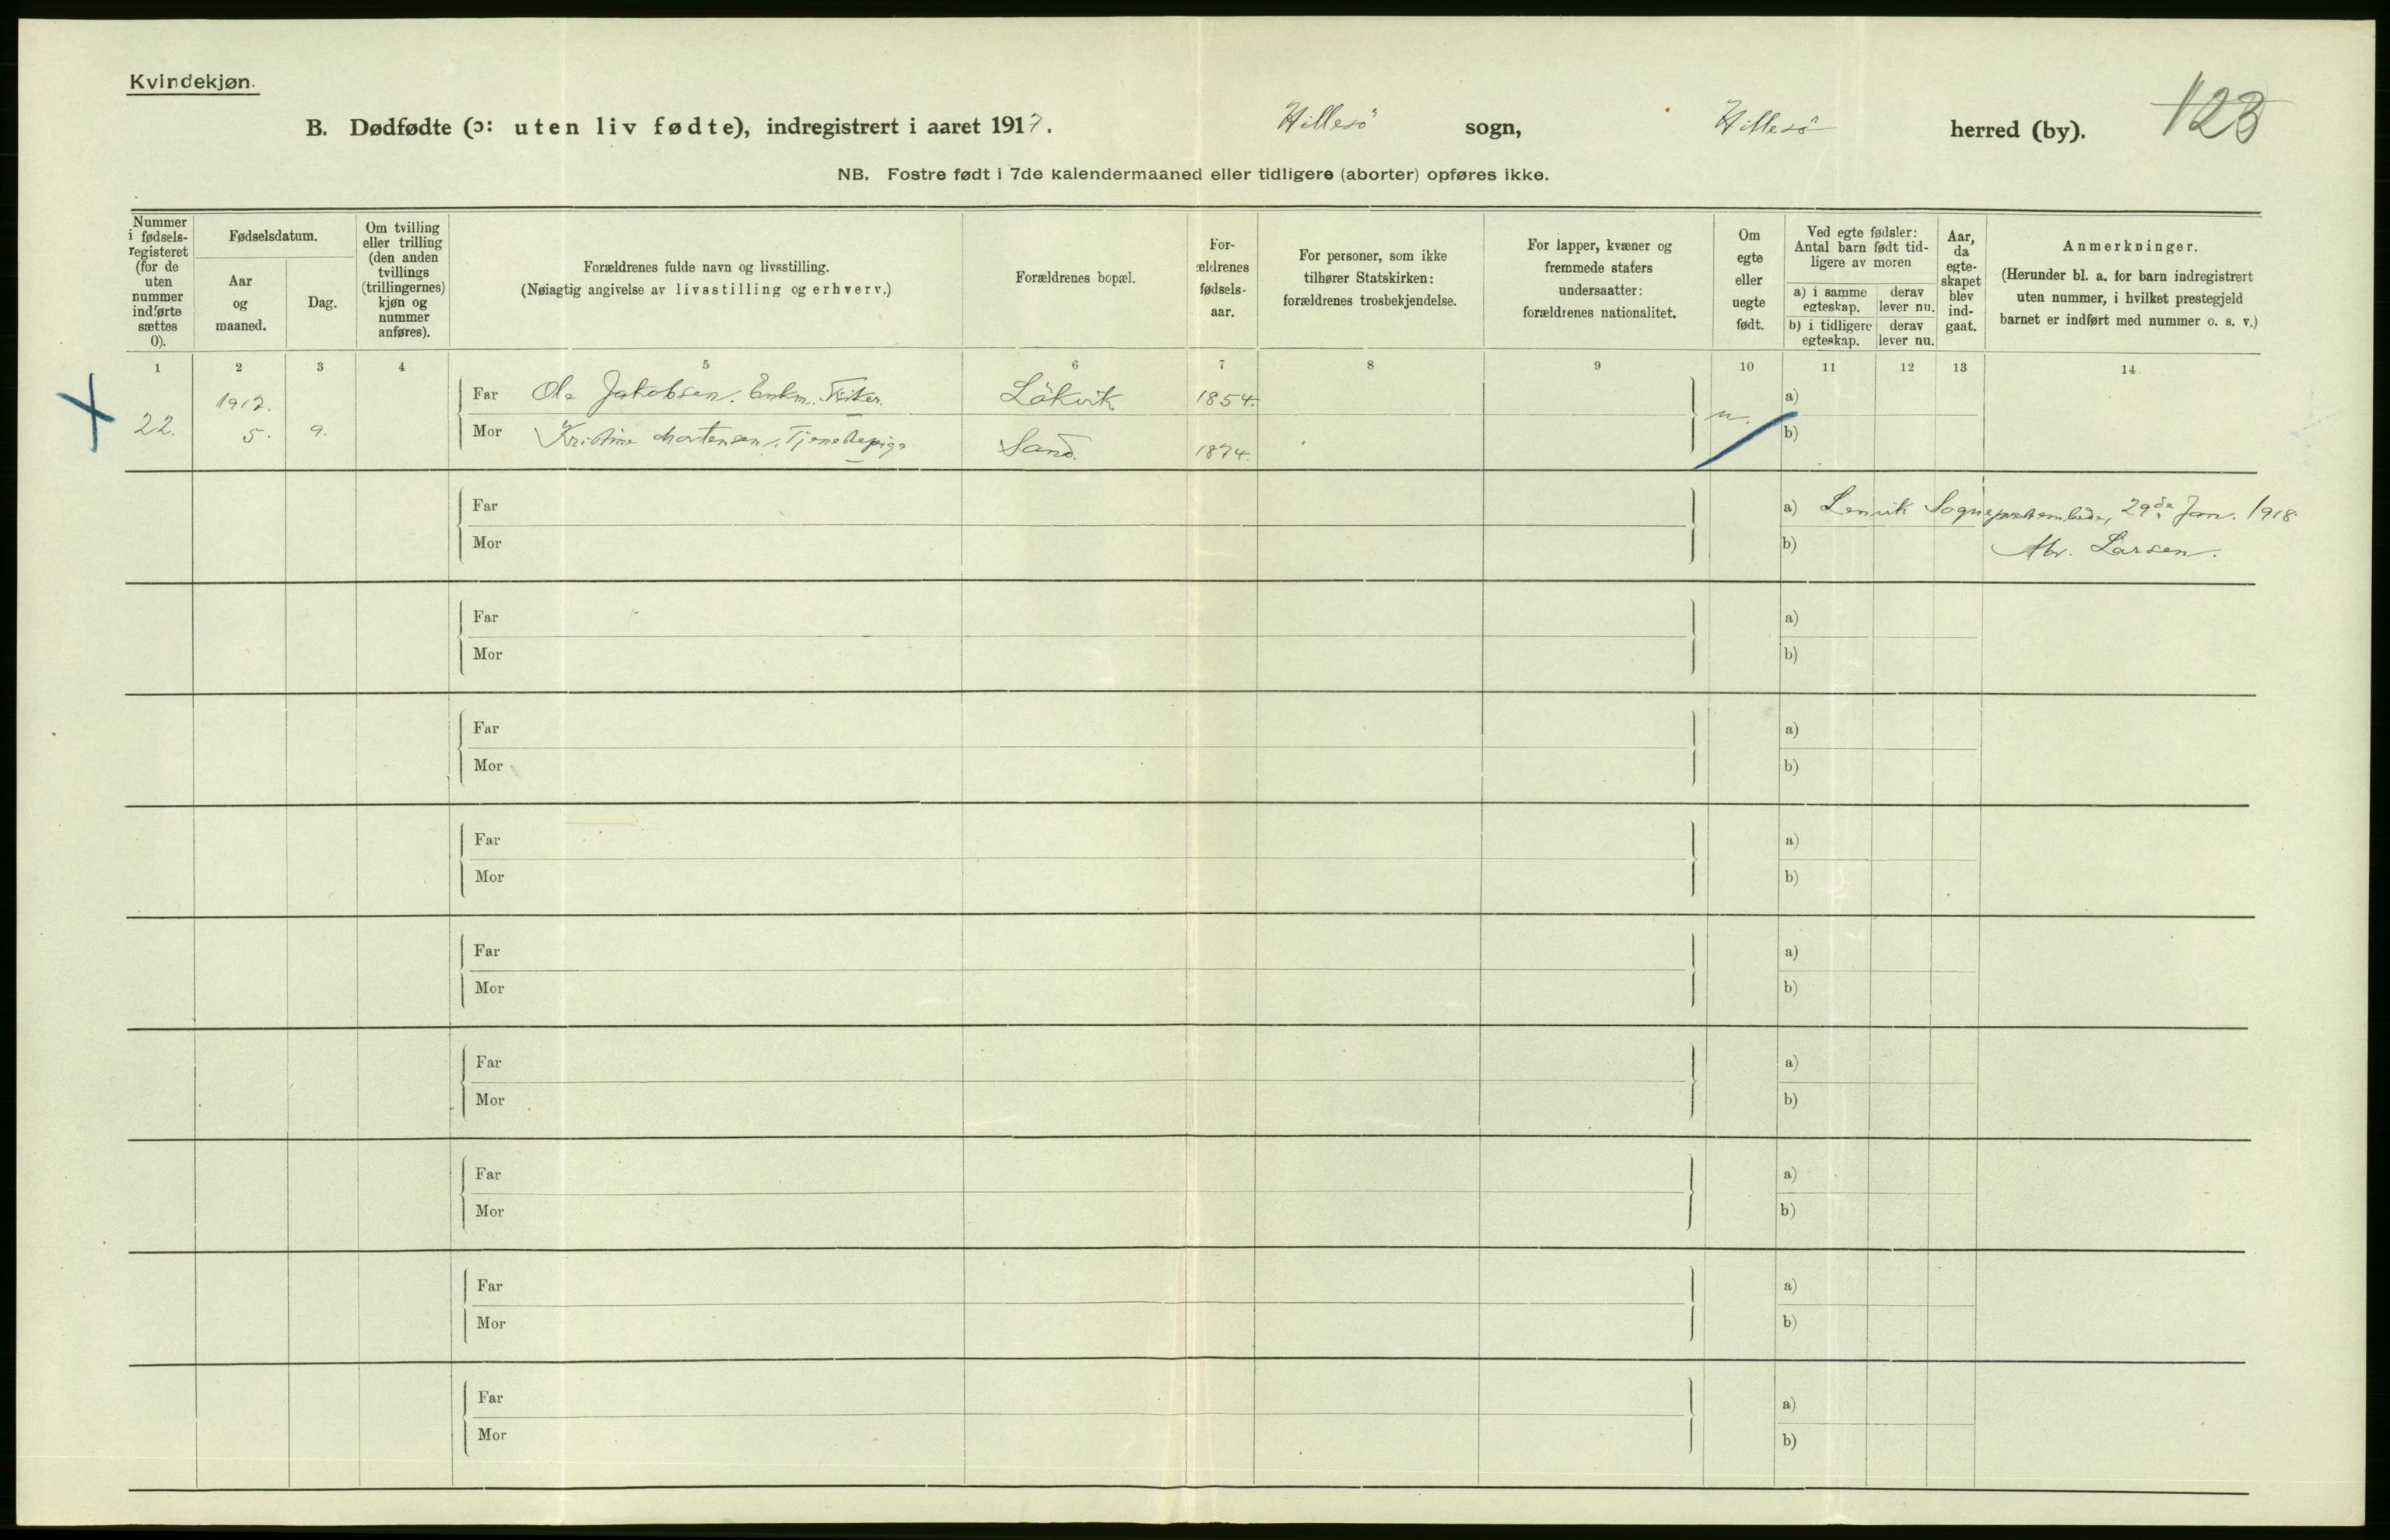 Kvindekjøn.
B. Dødfødte (ɔ: uten liv fødte), indregistrert i aaret 1917. Hillesö sogn, Hillesö herred (by). 123
NB. Fostre født i 7de kalendermaaned eller tidligere (aborter) opføres ikke.
Nummer i fødsels-registeret (for de uten nummer indførte sættes 0).
Fødselsdatum.
Aar og maaned.
Dag.
Om tvilling eller trilling (den anden tvillings (trillingernes) kjøn og nummer anføres).
Forældrenes fulde navn og livsstilling.
(Nøiagtig angivelse av livsstilling og erhverv.)
Forældrenes bopæl.
For-ældrenes fødsels-aar.
For personer, som ikke tilhører Statskirken: forældrenes trosbekjendelse.
For lapper, kvæner og fremmede staters undersaatter: forældrenes nationalitet.
Om egte eller uegte født.
Ved egte fødsler: Antal barn født tid-ligere av moren
a) i samme egteskap. derav lever nu.
b) i tidligere egteskap. derav lever nu.
Aar, da egte-skapet blev ind-gaat.
Anmerkninger.
(Herunder bl. a. for barn indregistrert uten nummer, i hvilket prestegjeld barnet er indført med nummer o. s. v.)
1 2 3 4 5 6 7 8 9 10 11 12 13 14
1917. Far Ole Jakobsen. Enkm. Fisker. Lökvik 1854. a)
22. 5. 9. Mor Kristine Mortensen. Tjenestepige Sand. 1874. u. b)
Far a) Lenvik Sogneprestembede, 29de Jan. 1918
Mor b) Larsen.
Far a)
Mor b)
Far a)
Mor b)
Far a)
Mor b)
Far a)
Mor b)
Far a)
Mor b)
Far a)
Mor b)
Far a)
Mor b)
Far a)
Mor b)